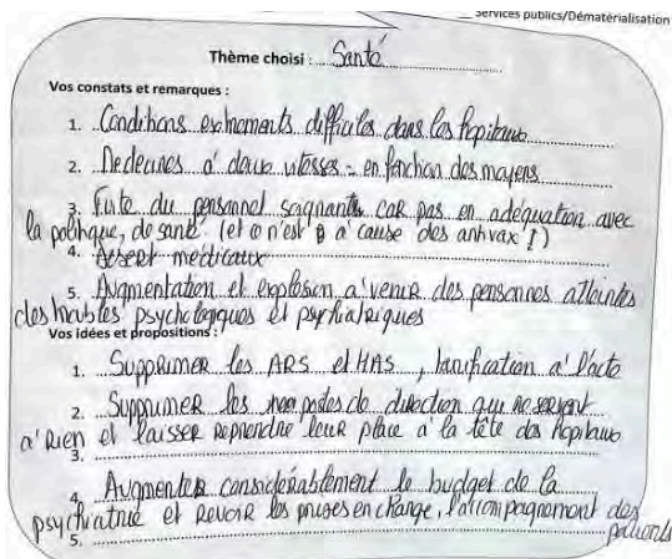 Services publics/Dématérialisation
Thème choisi : Santé
Vos constats et remarques :
1. Conditions extrements difficiles dans les hopitaux
2. Medecines à deux vitesses = en fonction des moyens
3. Fuite du personnel soignants car pas en adéquation avec
la politique, de santé (et ce n'est à cause des antivax !)
4. desert médicaux
5. Augmentation et explosion à venir des personnes atteintes
des troubles psychologiques et psychiatriques
Vos idées et propositions :
1. Supprimer les ARS et HAS, tarification à l'acte
2. Supprimer les postes de direction qui ne servent
à rien et laisser reprendre leur place à la tête des hopitaux
3.
4. Augmenter considérablement le budget de la
psychiatrie et revoir les prises en charge, l'accompagnement des
5. patients